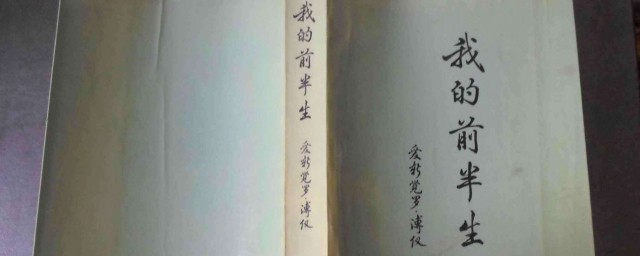 我的前半生
爱新觉罗·溥仪
我的前半生
爱新觉罗·溥仪